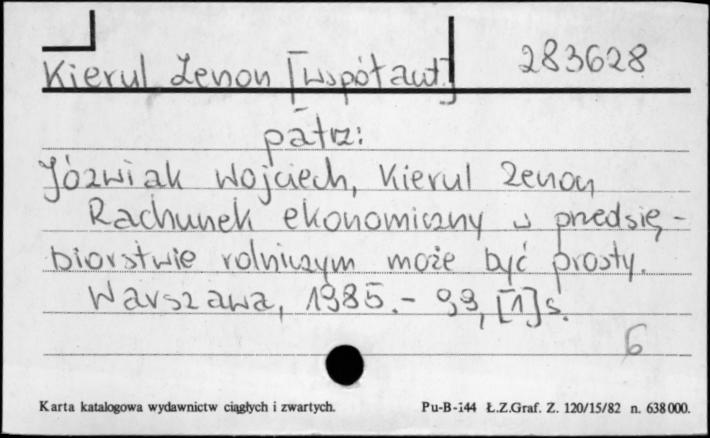 Kierul Zenon [współaut.] 283628
patrz:
Jóźwiak Wojciech, Kierul Zenon
Rachunek ekonomiczny w przedsię-
biorstwie rolniczym może być prosty.
Warszawa, 1985.- 99, [1] s.
6
Karta katalogowa wydawnictw ciągłych i zwartych. Pu-B-144 Ł.Z.Graf. Z. 120/15/82 n. 638000.